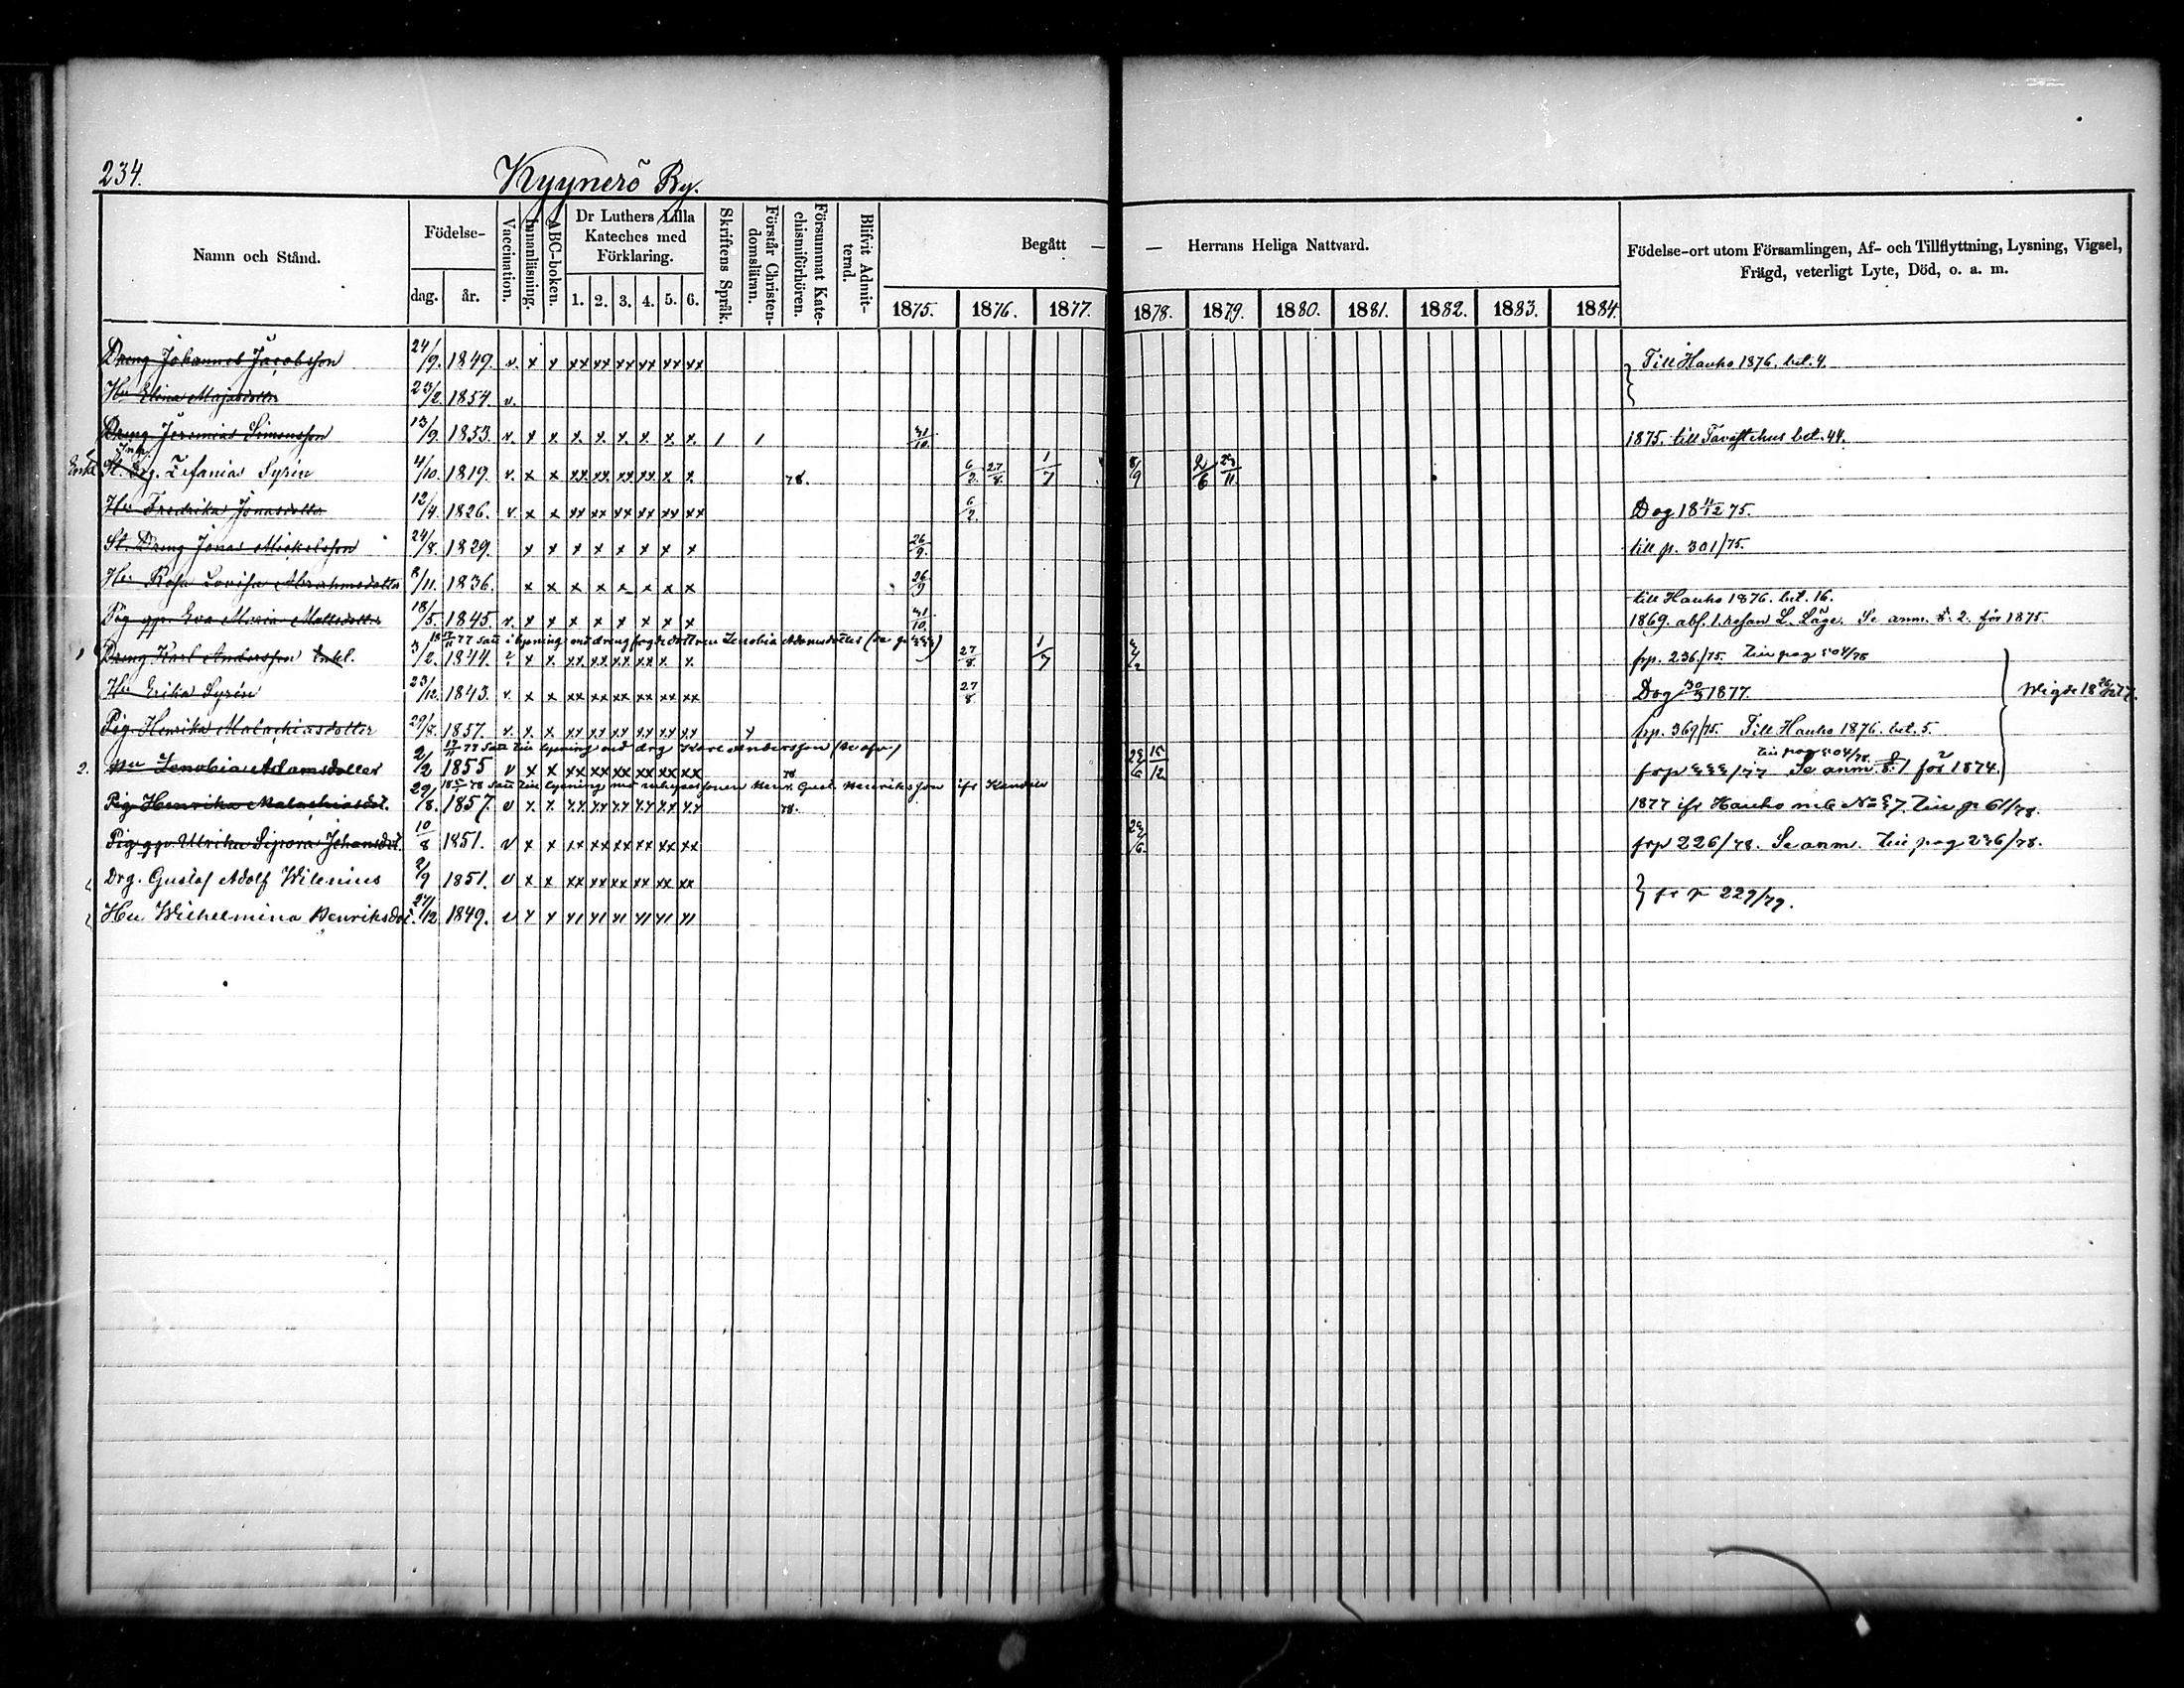 234.
Kyynerö By.
Namn och Stånd.
Födelse-
dag. år.
Vaccination.
Innanläsning.
ABC-boken.
Dr Luthers Lilla
Kateches med
Förklaring.
1. 2. 3. 4. 5. 6.
Skriftens Språk.
Förstår Christen-
domsläran.
Försummat Kate-
chismiförhören.
Blifvit Admit-
terad.
Begått — — Herrans Heliga Nattvard.
1875. 1876. 1877. 1878. 1879. 1880. 1881. 1882. 1883. 1884.
Födelse-ort utom Församlingen, Af- och Tillflyttning, Lysning, Vigsel,
Frägd, veterligt Lyte, Död, o. a. m.
Dreng Johannes Jacobsson 24/9. 1849. v. x x xx xx xx xx xx xx Till Hauho 1876. bet. 4.
Hu Elina Majasdotter 23/2. 1854. v.
Dreng Jeremias Simonsson 13/9. 1853. v. x x x. x. x. x. x. x. / / 31/10. 1875. till Tavastehus bet. 44.
Enkl. St. Drg. Zefanias Syrén 4/10. 1819. v. x x xx xx xx xx x x. 78. 6/2. 27/8. 1/7 8/9 2/6 23/11.
Hu Fredrika Jonasdotter 12/4. 1826. v. x x xx xx xx xx xx xx 6/2. Dog 18 4/12 75.
St. Dreng Jonas Mickelsson 24/8. 1829. x x x x x x x x 26/9. till p. 301/75.
Hu Rosa Lovisa Abrahmsdotter 8/11. 1836. x x x x x x x x 26/9
till Hauho 1876. bet. 16.
Pig. qp. Eva Maria Mattsdotter 18/5. 1845. v. x x x x x x x x 31/10. 1869. abf. 1. resan L. Läge. Se anm. s. 2. för 1875.
77 Satt i lysning med dreng fogde dottren Zenobia Adamsdotter
Dreng Karl Andersson Enkl. 3/2. 1844. ? x x xx xx xx xx x. x. 27/8. 1/7 frp. 236./75. till pag 504/78
Hu Erika Syrén 23/12. 1843. v. x x xx xx xx xx xx xx 27/8 Dog 30/3 1877.
Pig. Henrika Malachiasdotter 29/8. 1857. v. x x. xx xx xx xx xx xx x frp. 369/75. Till Hauho 1876. bet. 5.
77 Satt till lysning med drg Karl Andersson
till pag 504/78.
2. Hu Zenobia Adamsdotter 2/2 1855 v x x xx xx xx xx xx xx 78 15/12 Se anm. s. 1 för 1874.
78 Satt till lysning med Henr. Gust. Henriksson ifr
Pig Henrika Malachiasdot. 29/8. 1857. v x. x. xx xx xx xx xx xx 78. 1877 ifr Hauho mb till p 61/78.
Pig qp. Ulrika Sipora Johansdot. 10/8 1851. v x x xx xx xx xx xx xx frp 226/78. Se anm. till pag 236/78.
Drg. Gustaf Adolf Wilenius 2/9 1851. v x x xx xx xx xx xx xx
Hu Wilhelmina Henriksdot. 24/12 1849. v x x } fr p 229/79.